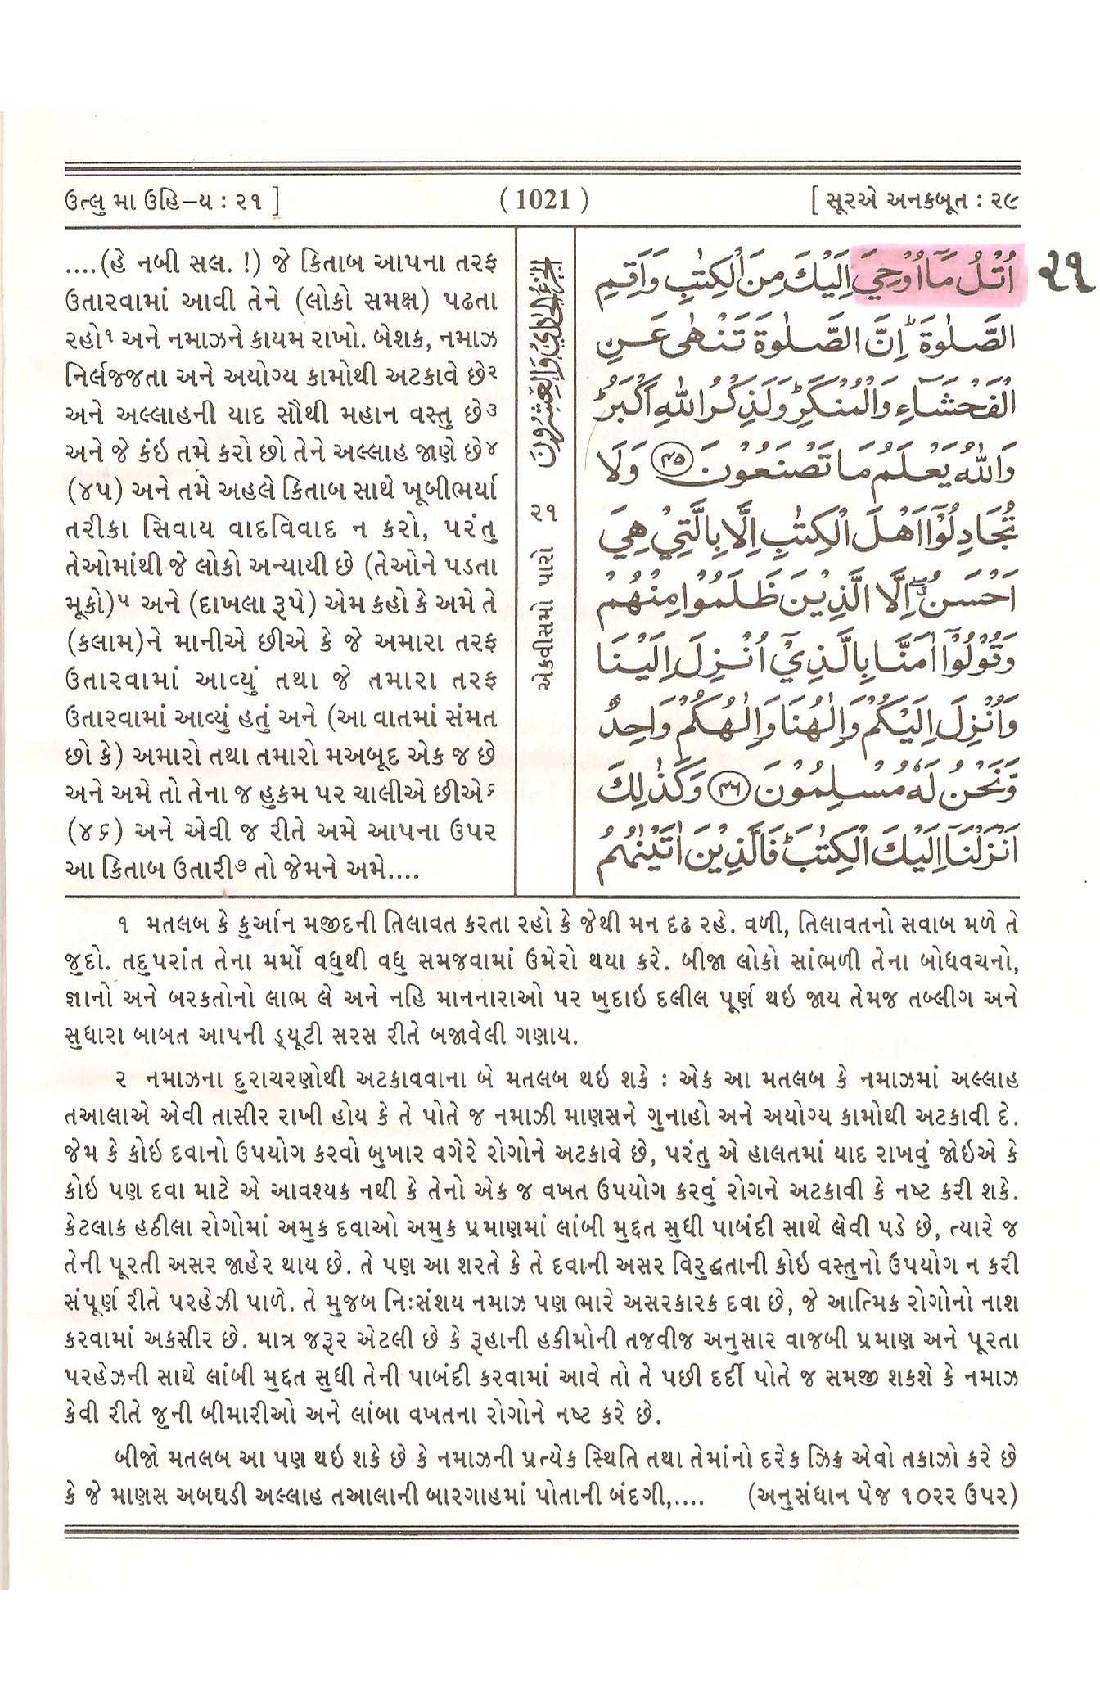 ઉત્લુ મા ઉહિ-ય : ૨૧ ]
( 1021 )
[ સૂરએ અનકબૂત : ૨૯
....(હે નબી સલ. !) જે કિતાબ આપના તરફ
ઉતારવામાં આવી તેને (લોકો સમક્ષ) પઢતા
રહો૧ અને નમાઝને કાયમ રાખો. બેશક, નમાઝ
નિર્લજજતા અને અયોગ્ય કામોથી અટકાવે છે૨
અને અલ્લાહની યાદ સૌથી મહાન વસ્તુ છે૩
અને જે કંઇ તમે કરો છો તેને અલ્લાહ જાણે છે૪
(૪૫) અને તમે અહલે કિતાબ સાથે ખૂબીભર્યા
તરીકા સિવાય વાદવિવાદ ન કરો, પરંતુ
તેઓમાંથી જે લોકો અન્યાયી છે (તેઓને પડતા
મૂકો)૫ અને (દાખલા રૂપે) એમ કહો કે અમે તે
(કલામ)ને માનીએ છીએ કે જે અમારા તરફ
ઉતારવામાં આવ્યું તથા જે તમારા તરફ
ઉતારવામાં આવ્યું હતું અને (આ વાતમાં સંમત
છો કે) અમારો તથા તમારો મઅબૂદ એક જ છે
અને અમે તો તેના જ હુકમ પર ચાલીએ છીએ૬
(૪૬) અને એવી જ રીતે અમે આપના ઉપર
આ કિતાબ ઉતારી૭ તો જેમને અમે....
الجزء الحادي والعشرون
એકવીસમો પારો ૨૧
اُتْلُ مَآ اُوْحِيَ اِلَيْكَ مِنَ الْكِتٰبِ وَاَقِمِ
૨૧
الصَّلٰوةَ ؕ اِنَّ الصَّلٰوةَ تَنْهٰى عَنِ
الْفَحْشَآءِ وَالْمُنْكَرِ ؕ وَلَذِكْرُ اللّٰهِ اَكْبَرُ ؕ
وَاللّٰهُ يَعْلَمُ مَا تَصْنَعُوْنَ ۝۴۵ وَلَا
تُجَادِلُوْٓا اَهْلَ الْكِتٰبِ اِلَّا بِالَّتِيْ هِيَ
اَحْسَنُ ۖ اِلَّا الَّذِيْنَ ظَلَمُوْا مِنْهُمْ
وَقُوْلُوْٓا اٰمَنَّا بِالَّذِيْٓ اُنْزِلَ اِلَيْنَا
وَاُنْزِلَ اِلَيْكُمْ وَاِلٰهُنَا وَاِلٰهُكُمْ وَاحِدٌ
وَّنَحْنُ لَهٗ مُسْلِمُوْنَ ۝۴۶ وَكَذٰلِكَ
اَنْزَلْنَآ اِلَيْكَ الْكِتٰبَ ؕ فَالَّذِيْنَ اٰتَيْنٰهُمُ
૧ મતલબ કે કુર્આન મજીદની તિલાવત કરતા રહો કે જેથી મન દઢ રહે. વળી, તિલાવતનો સવાબ મળે તે
જુદો. તદુપરાંત તેના મર્મો વધુથી વધુ સમજવામાં ઉમેરો થયા કરે. બીજા લોકો સાંભળી તેના બોધવચનો,
જ્ઞાનો અને બરકતોનો લાભ લે અને નહિ માનનારાઓ પર ખુદાઇ દલીલ પૂર્ણ થઇ જાય તેમજ તબ્લીગ અને
સુધારા બાબત આપની ડ્યૂટી સરસ રીતે બજાવેલી ગણાય.
૨ નમાઝના દુરાચરણોથી અટકાવવાના બે મતલબ થઇ શકે : એક આ મતલબ કે નમાઝમાં અલ્લાહ
તઆલાએ એવી તાસીર રાખી હોય કે તે પોતે જ નમાઝી માણસને ગુનાહો અને અયોગ્ય કામોથી અટકાવી દે.
જેમ કે કોઇ દવાનો ઉપયોગ કરવો બુખાર વગેરે રોગોને અટકાવે છે, પરંતુ એ હાલતમાં યાદ રાખવું જોઇએ કે
કોઇ પણ દવા માટે એ આવશ્યક નથી કે તેનો એક જ વખત ઉપયોગ કરવું રોગને અટકાવી કે નષ્ટ કરી શકે.
કેટલાક હઠીલા રોગોમાં અમુક દવાઓ અમુક પ્રમાણમાં લાંબી મુદ્દત સુધી પાબંદી સાથે લેવી પડે છે, ત્યારે જ
તેની પૂરતી અસર જાહેર થાય છે. તે પણ આ શરતે કે તે દવાની અસર વિરુદ્ધતાની કોઇ વસ્તુનો ઉપયોગ ન કરી
સંપૂર્ણ રીતે પરહેઝી પાળે. તે મુજબ નિઃસંશય નમાઝ પણ ભારે અસરકારક દવા છે, જે આત્મિક રોગોનો નાશ
કરવામાં અકસીર છે. માત્ર જરૂર એટલી છે કે રૂહાની હકીમોની તજવીજ અનુસાર વાજબી પ્રમાણ અને પૂરતા
પરહેઝની સાથે લાંબી મુદ્દત સુધી તેની પાબંદી કરવામાં આવે તો તે પછી દર્દી પોતે જ સમજી શકશે કે નમાઝ
કેવી રીતે જુની બીમારીઓ અને લાંબા વખતના રોગોને નષ્ટ કરે છે.
બીજો મતલબ આ પણ થઇ શકે છે કે નમાઝની પ્રત્યેક સ્થિતિ તથા તેમાંનો દરેક ઝિક્ર એવો તકાઝો કરે છે
કે જે માણસ અબઘડી અલ્લાહ તઆલાની બારગાહમાં પોતાની બંદગી,.... (અનુસંધાન પેજ ૧૦૨૨ ઉપર)